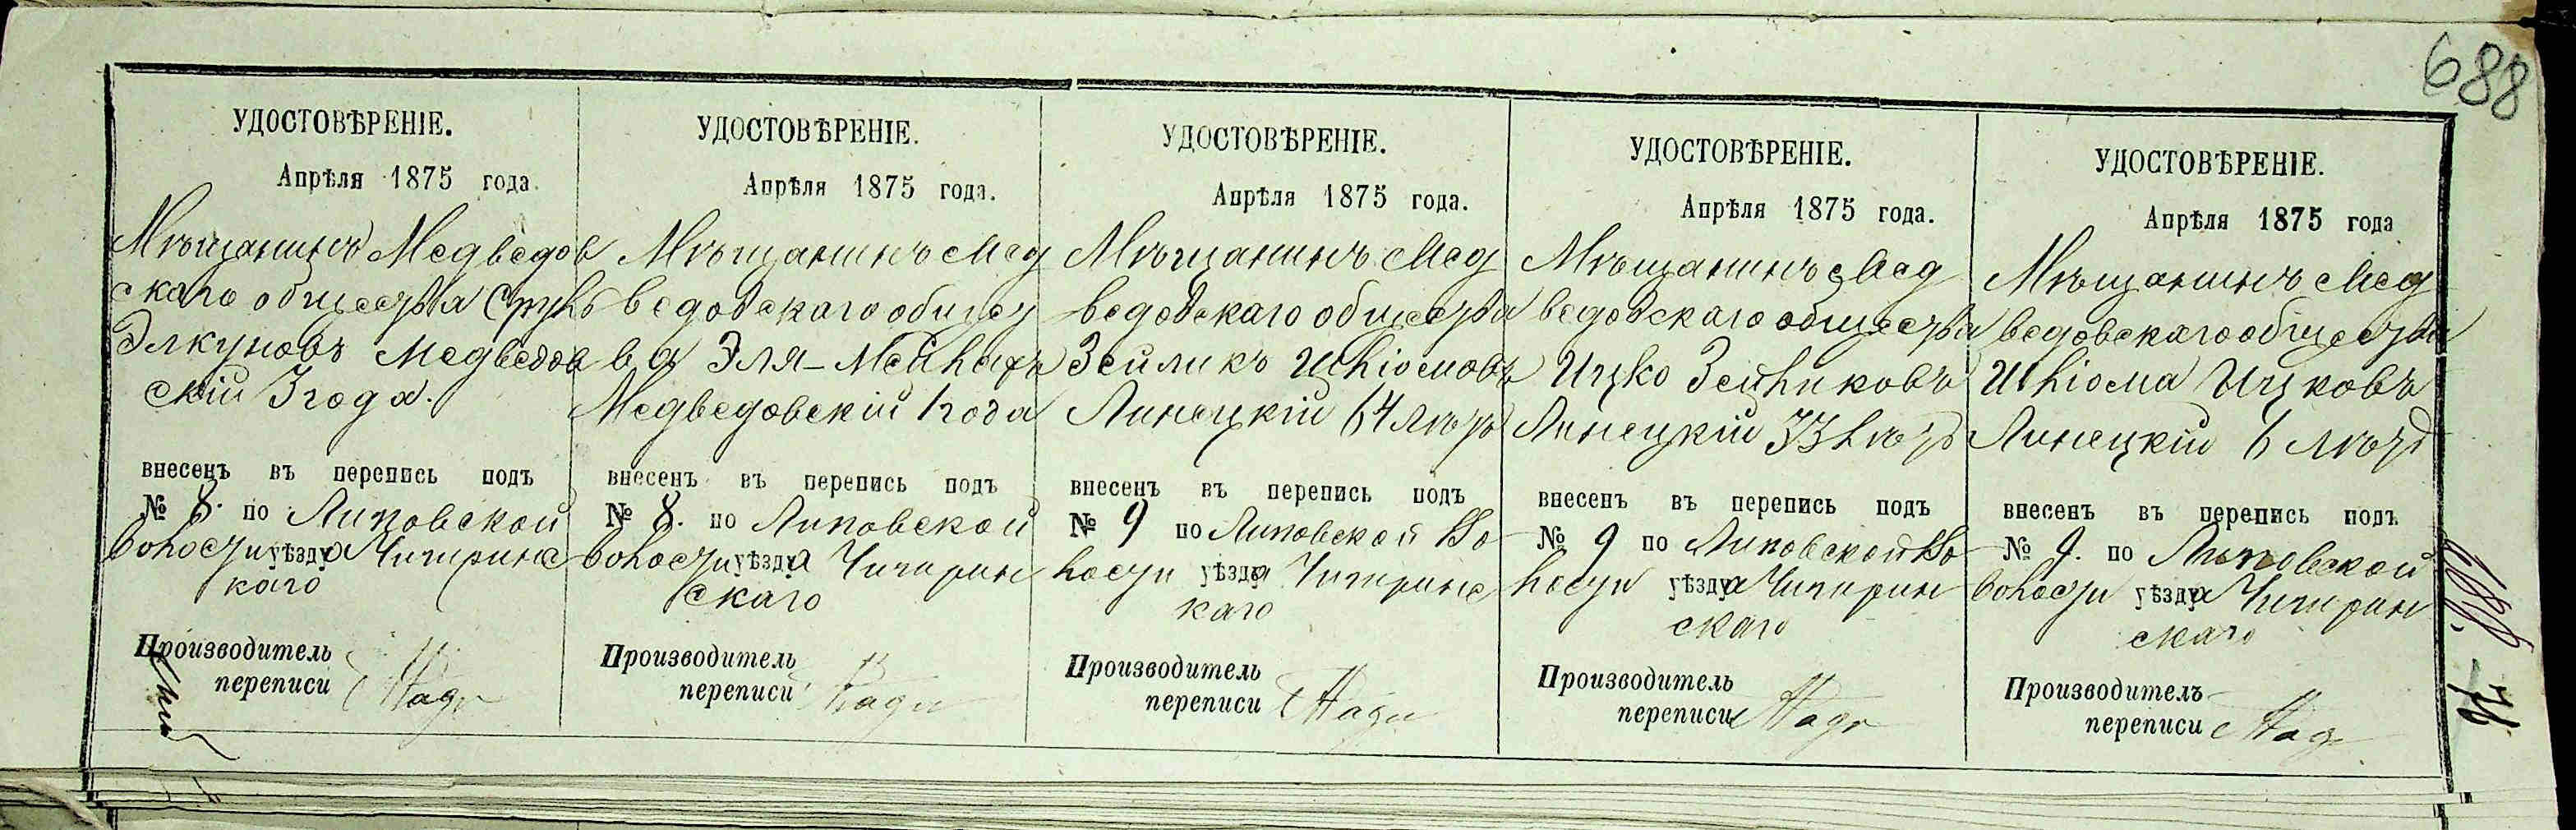 688
УДОСТОВѢРЕНІЕ.
Апрѣля 1875 года.
Мѣщанинъ Медведов
скаго общества Сруль
Элкуновъ Медведов
скій 3 года.
внесенъ въ перепись подъ
№ 8. по Липовской
волости уѣзда Чигринс
каго
Производитель
переписи
УДОСТОВѢРЕНІЕ.
Апрѣля 1875 года.
Мѣщанинъ Мед
ведовскаго общест
ва Эля-Мейлахъ
Медведовскій 1 года
внесенъ въ перепись подъ
№ 8. по Липовской
волости уѣзда Чигирин
скаго
Производитель
переписи
УДОСТОВѢРЕНІЕ.
Апрѣля 1875 года.
Мѣщанинъ Мед
ведовскаго общества
Зейликъ Шліомовъ
Линецкій 64 лѣтъ
внесенъ въ перепись подъ
№ 9 по Липовской Во
лости уѣзда Чигиринс
каго
Производитель
переписи
УДОСТОВѢРЕНІЕ.
Апрѣля 1875 года.
Мѣщанинъ Мед
ведовскаго общества
Ицко Зейликовъ
Линецкій 33 лѣтъ
внесенъ въ перепись подъ
№ 9 по Липовской Во
лости уѣзда Чигирин
скаго
Производитель
переписи
УДОСТОВѢРЕНІЕ.
Апрѣля 1875 года
Мѣщанинъ Мед
ведовскаго общества
Шліома Ицковъ
Линецкій 6 лѣтъ
внесенъ въ перепись подъ
№ 9. по Липовской
волости уѣзда Чигирин
скаго
Производитель
переписи